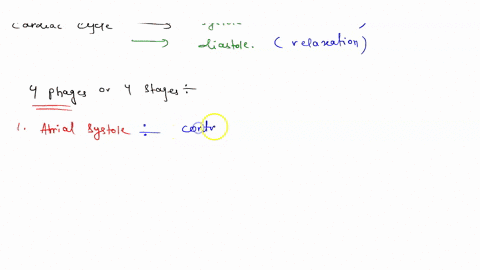 Cardiac Cycle → systole )
→ diastole. ( relaxation )
4 phages or 4 stages ÷
1. Atrial systole ÷ contr